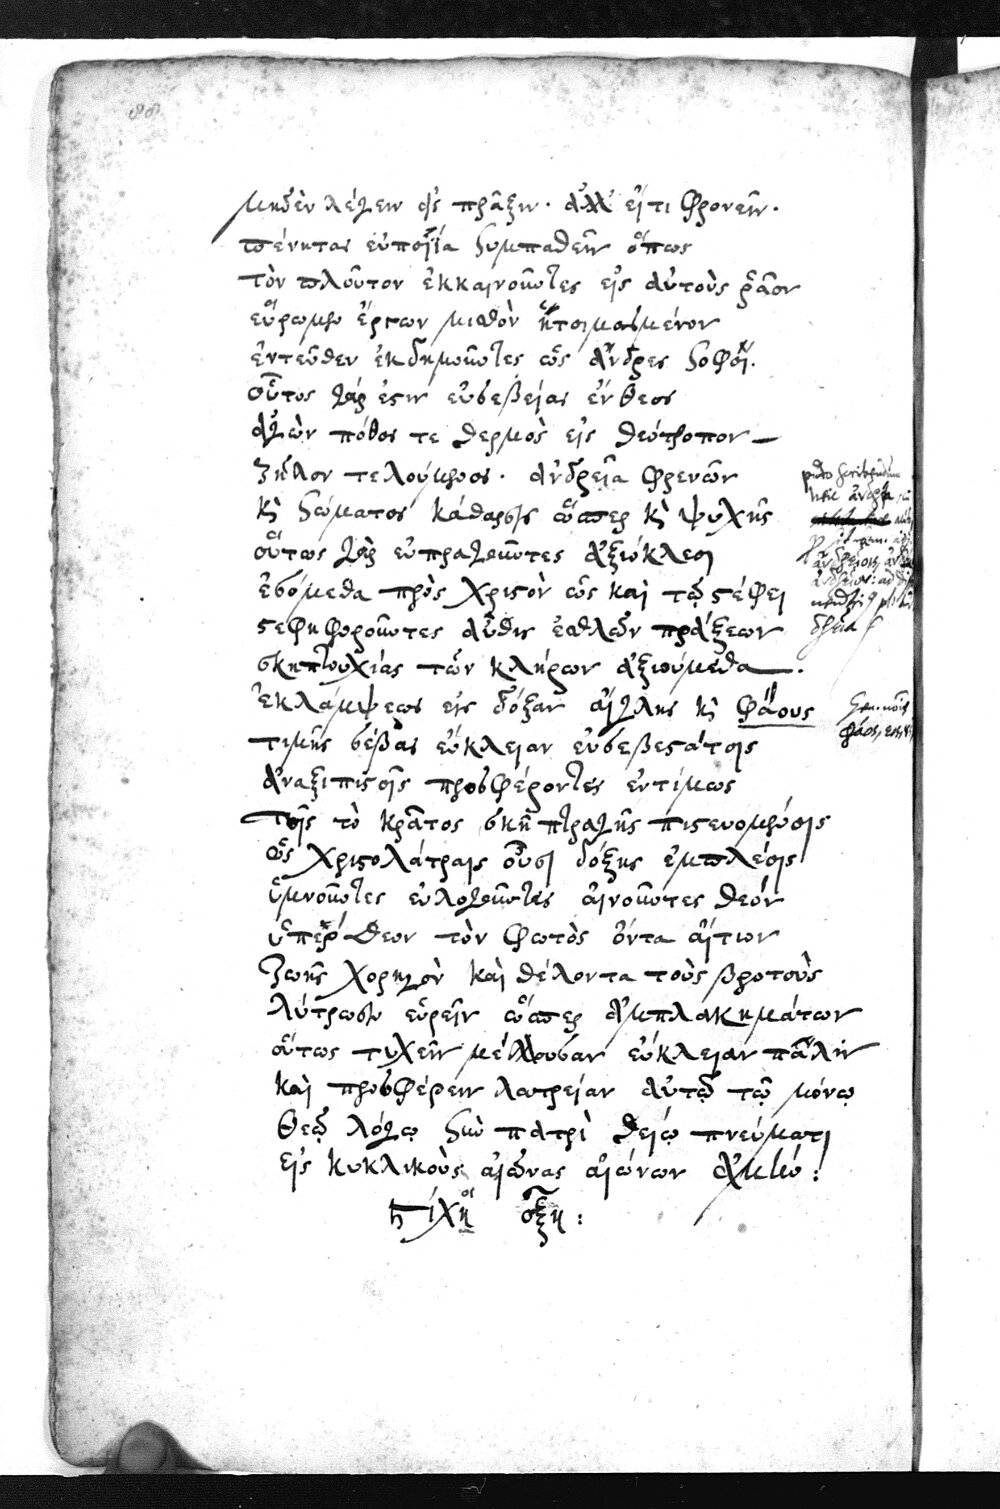 μηδὲν λέγειν εἰς πρᾶξιν. ἀλλ' εἴτι φρονεῖν.
πένητας εὐποιΐα συμπαθεῖν ὅπως
τὸν πλοῦτον ἐκκαινοῦντες εἰς αὐτοὺς ῥᾷον
εὕρωμεν ἔργων μισθὸν ἡτοιμασμένον
ἐντεῦθεν ἐκδημοῦντες ὡς ἄνδρες σοφοί.
οὗτος γάρ ἐστιν εὐσεβείας ἔνθεος
ἀγὼν πόθος τε θερμὸς εἰς θεότροπον
ζῆλον τελούμενος. ἀνδρεῖα φρενῶν
κὶ σώματος κάθαρσις ὥσπερ κὶ ψυχῆς
οὕτως γὰρ εὐπραγοῦντες ἀξιόκλεοι
ἐσόμεθα πρὸς χριστὸν ὡς καὶ τῷ στέφει
στεφηφοροῦντες αὖθις ἐσθλῶν πράξεων
σκηπτουχίας τῶν κλήρων ἀξιούμεθα.
ἐκλάμψεως εἰς δόξαν αἴγλης κὶ φάους
τιμῆς σέβας εὔκλειαν εὐσεβεστάτοις
ἀναξιπιστοῖς προσφέροντες ἐντίμως
τοῖς τὸ κράτος σκηπτραγῆς πιστευομένοις
ὡς χριστολάτραις οὖσι δόξης ἐμπλέοις
ὑμνοῦντες εὐλογοῦντες αἰνοῦντες θεόν
ὑπέρθεον τὸν φωτὸς ὄντα αἴτιον
ζωῆς χορηγὸν καὶ θέλοντα τοὺς βροτοὺς
λύτρωσιν εὑρεῖν ὥσπερ ἀμπλακημάτων
οὕτως τυχεῖν μέλλουσαν εὔκλειαν πάλιν
καὶ προσφέρειν λατρείαν αὐτῷ τῷ μόνῳ
θεῷ λόγῳ σὺν πατρὶ θείῳ πνεύματι
εἰς κυκλικοὺς αἰῶνας αἰώνων ἀμήν:
στίχοι σξη:
φάος, εος,